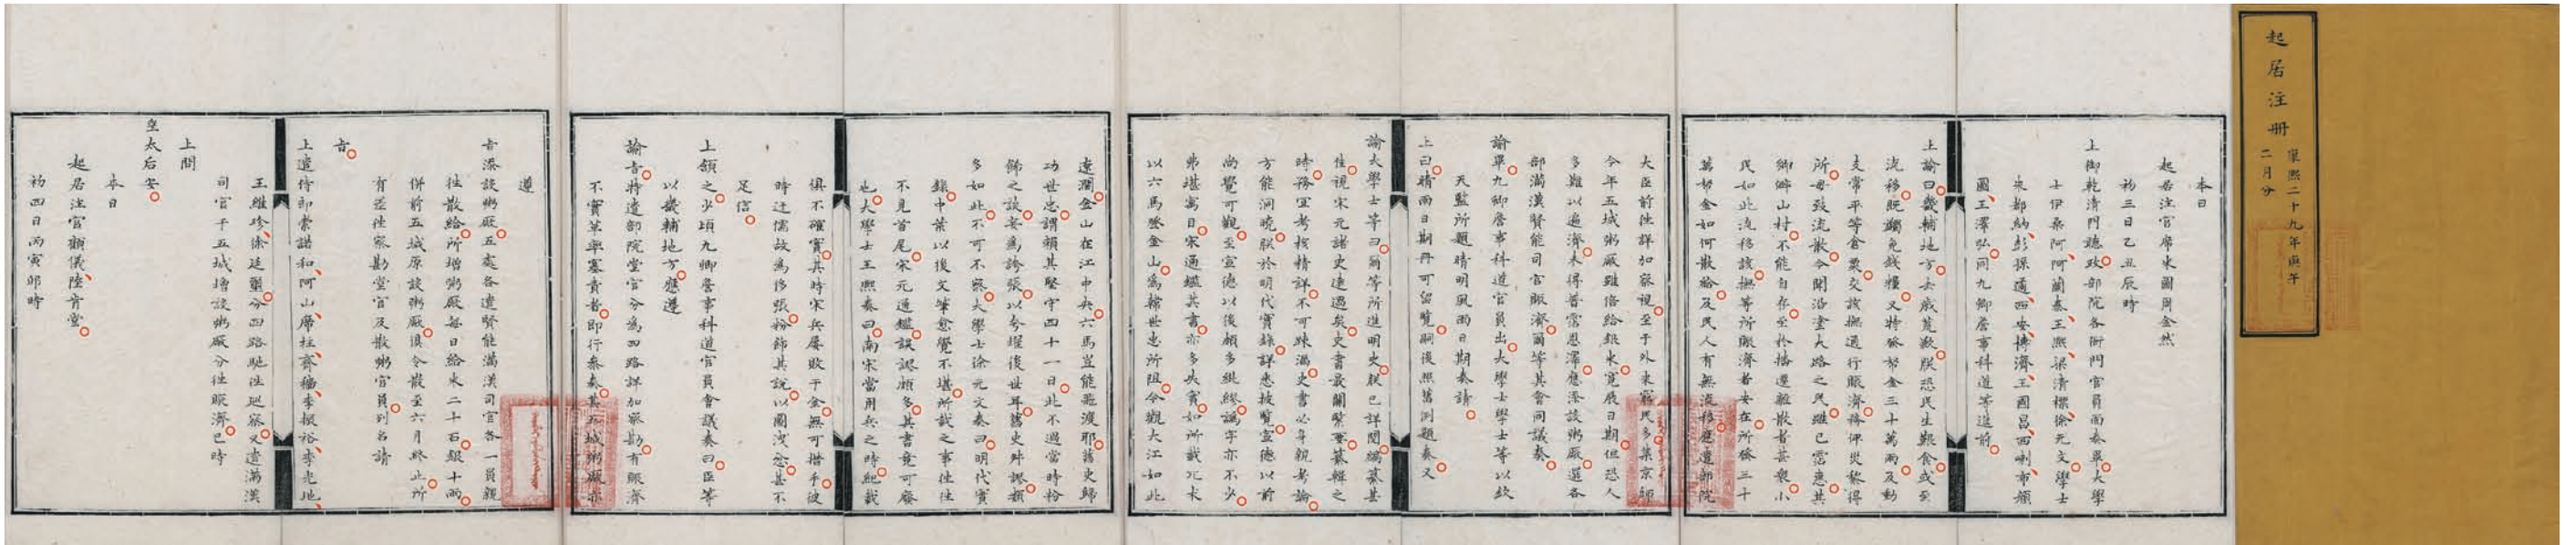 起居注冊
康熙二十九年庚午
二月分
本日
起居注官庫東圖周金然
初三日乙丑辰時
上御乾清門聽政部院各衙門官員面奏畢大學
士伊桑阿阿蘭泰王熙梁清標徐元文學士
朱都納彭孫遹西安博濟王國昌西喇布顧
圖王澤弘同九卿詹事科道等進前
上諭曰畿輔地方去歲荒歉朕恐民生艱食或至
流移既蠲免錢糧又特發帑金三十萬兩及動
支常平等倉粟交該撫通行賑濟務俾災黎得
所毋致流散今聞沿途大路之民雖已霑惠其
鄉僻山村不能自存至於播遷離散者甚衆小
民如此流移該撫等所賑濟者安在所發三十
萬帑金如何散給及民人有無流移應遣部院
大臣前往詳加察視至于外來窮民多集京師
今年五城粥廠雖倍給銀米寬展日期但恐人
多難以遍濟未得普霑恩澤應添設粥廠選各
部滿漢賢能司官賑濟爾等其會同議奏
諭畢九卿詹事科道官員出大學士學士等以欽
天監所題晴明風雨日期奏請
上曰晴雨日期冊可留覽嗣後照舊測題奏又
諭大學士等曰爾等所進明史朕已詳閱編纂甚
佳視宋元諸史遠過矣史書最關緊要纂輯之
時務宜考核精詳不可疎漏史書必身親考論
方能洞曉朕於明代實錄詳悉披覽宣德以前
尚覺可觀至宣德以後頗多紕繆譌字亦不少
弗堪寓目宋通鑑其書亦多失實如所載兀朮
以六馬登金山為韓世忠所阻今觀大江如此
遼濶金山在江中央六馬豈能飛渡耶舊史歸
功世忠謂賴其堅守四十一日此不過當時粉
飾之談妄為誇張以夸耀後世耳舊史舛謬類
多如此不可不察大學士徐元文奏曰明代實
錄中葉以後文筆愈覺不堪所載之事往往
不見首尾宋元通鑑誤謬頗多其書竟可廢
也大學士王熙奏曰南宋當用兵之時紀載
俱不確實其時宋兵屢敗于金無可措手彼
時迂儒故為侈張粉飾其說以圖洩忿甚不
足信
上頷之少頃九卿詹事科道官員會議奏曰臣等
以畿輔地方應遵
諭旨特遣部院堂官分為四路詳加察勘有賑濟
不實草率塞責者即行參奏其五城粥廠亦
遵
旨添設粥廠五處各遣賢能滿漢司官各一員親
往散給所增粥廠每日給米二十石銀十兩
併前五城原設粥廠俱令散至六月終止所
有差往察勘堂官及散粥官員列名請
旨
上遣侍郎索諾和阿山席柱齊穡李振裕李光地
王維珍徐廷璽分四路馳往廵察又遣滿漢
司官于五城增設粥廠分往賑濟已時
上問
皇太后安
本日
起居注官顧儀陸肯堂
初四日丙寅卯時